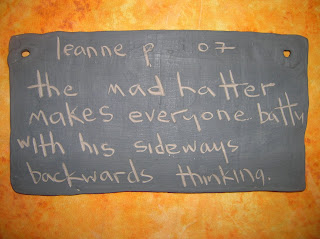 leanne p 07
the mad hatter
makes everyone batty
with his sideways
backwards thinking.